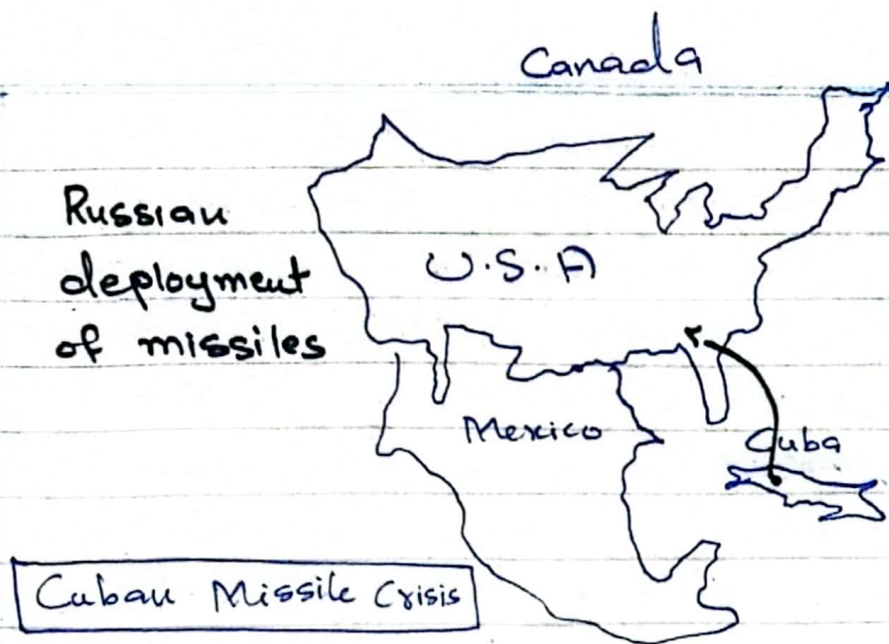 Canada
Russian
deployment
of missiles
U.S.A
Mexico
Cuba
Cuban Missile Crisis